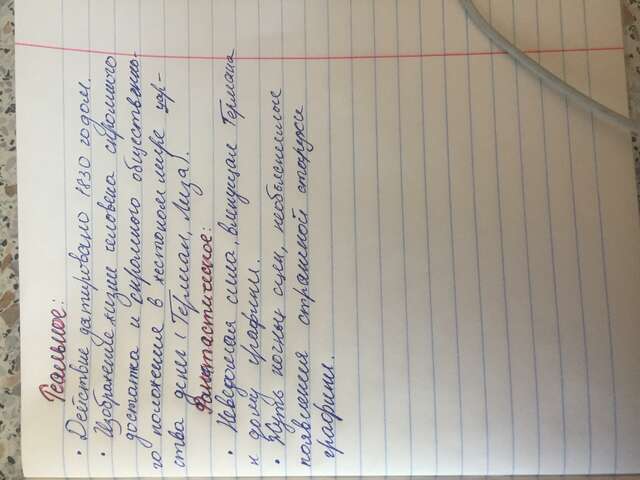 Реальное:
• Действие датировано 1830 годом.
• Изображение жизни человека скромного
достатка и скромного общественно-
го положения в жестоком мире цар-
ства денег (Герман, Лиза).
Фантастическое:
• Неведомая сила, влекущая Германа
к дому графини.
• Жуть ночных сцен, необъяснимые
появления страшной старухи
графини.